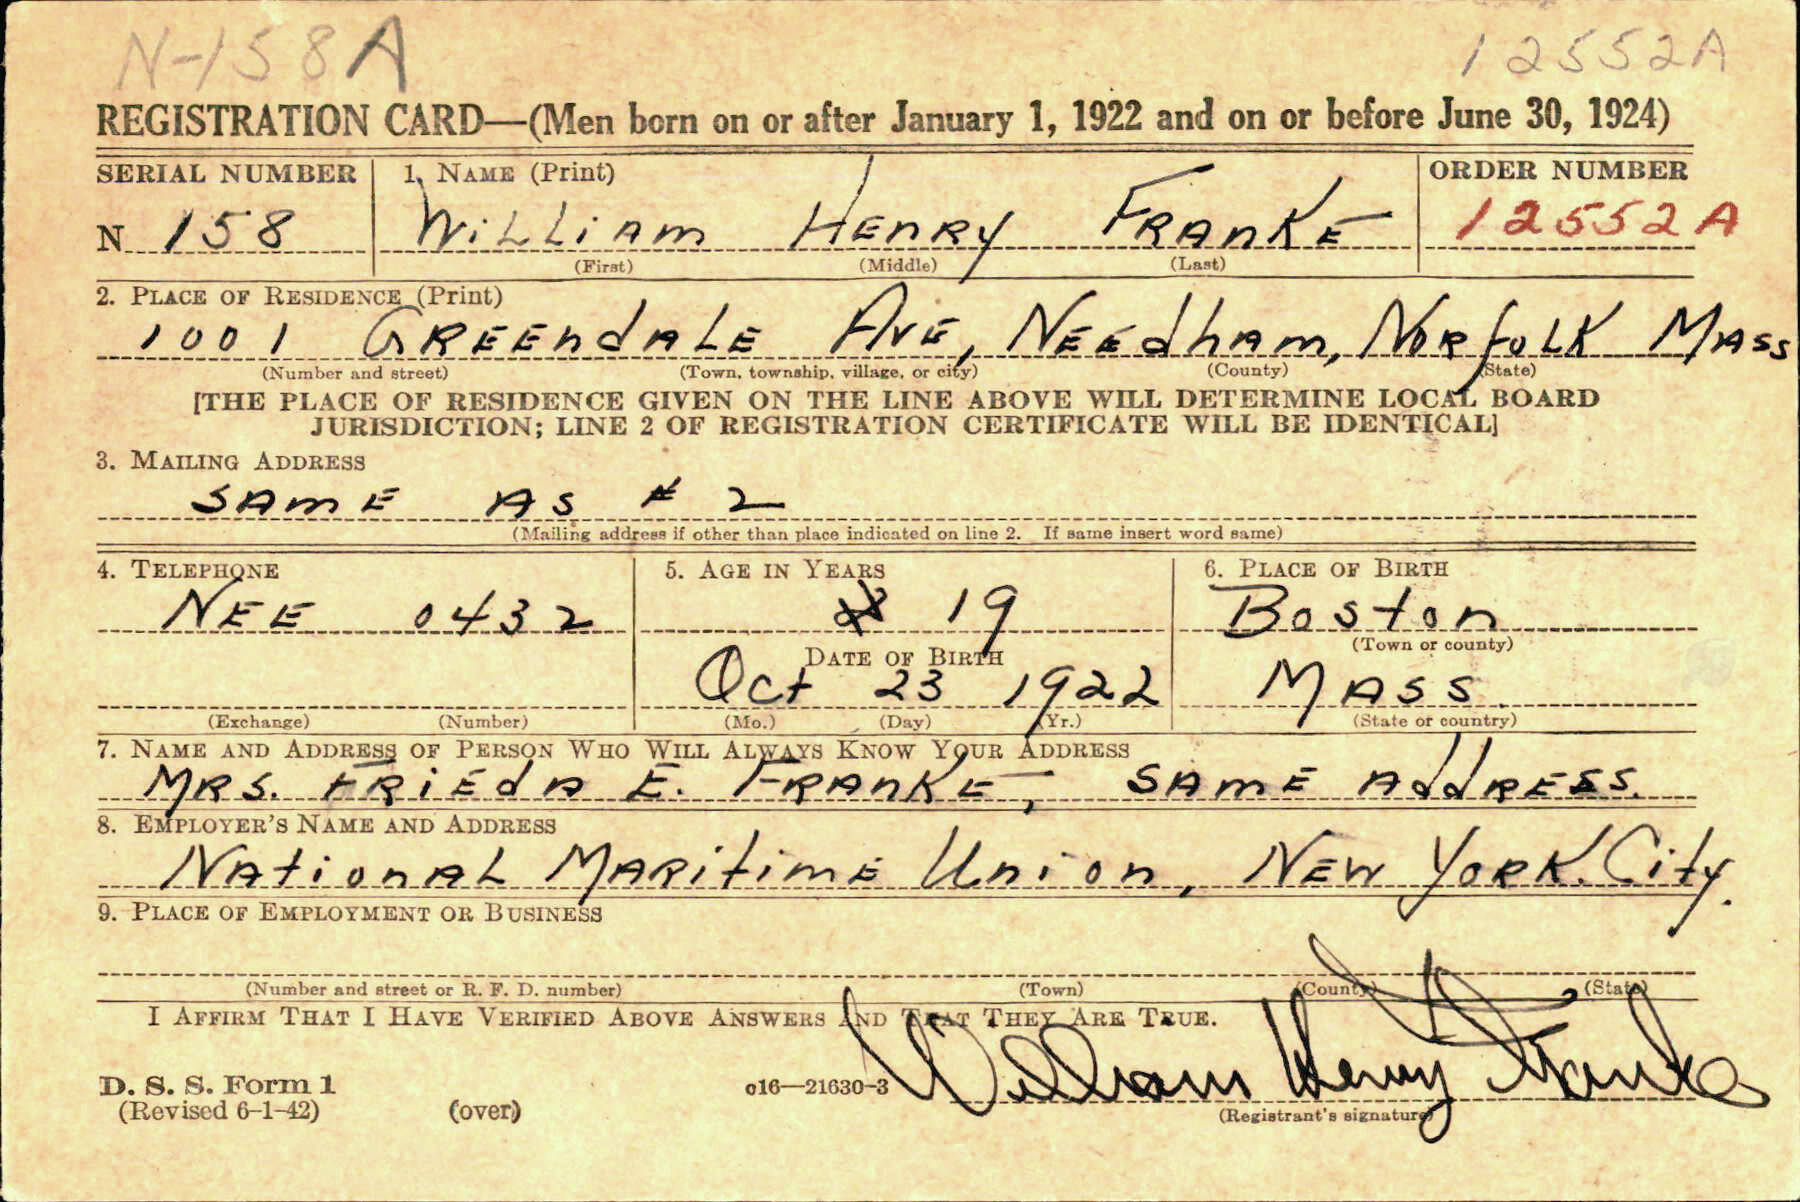 N-158A 12552A
REGISTRATION CARD—(Men born on or after January 1, 1922 and on or before June 30, 1924)
SERIAL NUMBER 1. NAME (Print) ORDER NUMBER
N 158 William Henry Franke 12552A
(First) (Middle) (Last)
2. PLACE OF RESIDENCE (Print)
1001 Greendale Ave, Needham, Norfolk Mass
(Number and street) (Town, township, village, or city) (County) (State)
[THE PLACE OF RESIDENCE GIVEN ON THE LINE ABOVE WILL DETERMINE LOCAL BOARD
JURISDICTION; LINE 2 OF REGISTRATION CERTIFICATE WILL BE IDENTICAL]
3. MAILING ADDRESS
Same As # 2
(Mailing address if other than place indicated on line 2. If same insert word same)
4. TELEPHONE 5. AGE IN YEARS 6. PLACE OF BIRTH
Nee 0432 19 Boston
(Town or county)
DATE OF BIRTH
Oct 23 1922 Mass.
(Exchange) (Number) (Mo.) (Day) (Yr.) (State or country)
7. NAME AND ADDRESS OF PERSON WHO WILL ALWAYS KNOW YOUR ADDRESS
Mrs. Frieda E. Franke, Same Address.
8. EMPLOYER'S NAME AND ADDRESS
National Maritime Union, New York. City.
9. PLACE OF EMPLOYMENT OR BUSINESS
(Number and street or R. F. D. number) (Town) (County) (State)
I AFFIRM THAT I HAVE VERIFIED ABOVE ANSWERS AND THAT THEY ARE TRUE.
William Henry Franke
D. S. S. Form 1 o16—21630-3
(Revised 6-1-42) (over) (Registrant's signature)